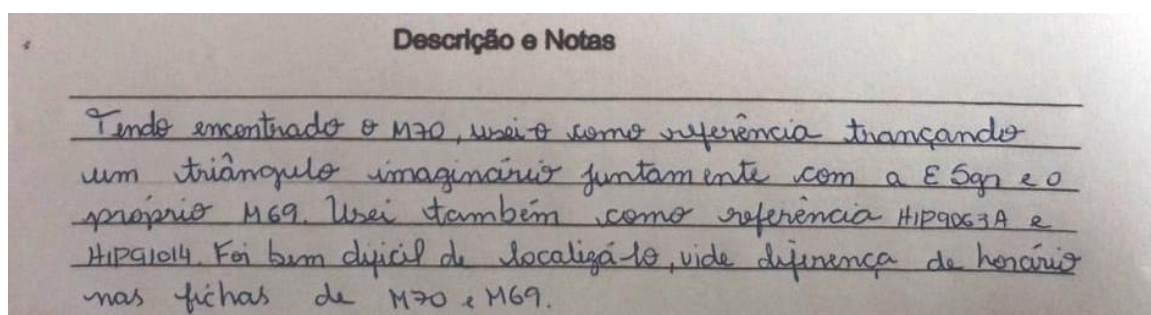 Descrição e Notas
Tendo encontrado o M70, usei-o como referência trançando
um triângulo imaginário juntamente com a ε Sgr e o
próprio M69. Usei também como referência HIP9063A e
HIP91014. Foi bem difícil de localizá-lo, vide diferença de horário
nas fichas de M70 e M69.